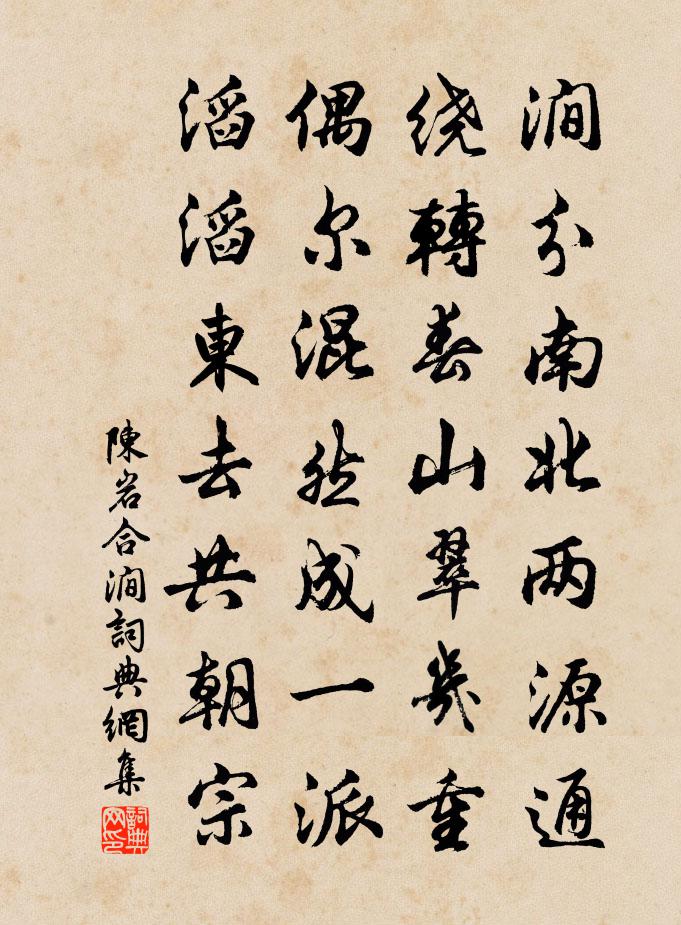 涧分南北两源通
绕轉春山翠幾重
偶尔混然成一派
滔滔東去共朝宗
陳岩合涧詞典網集
詞典网印